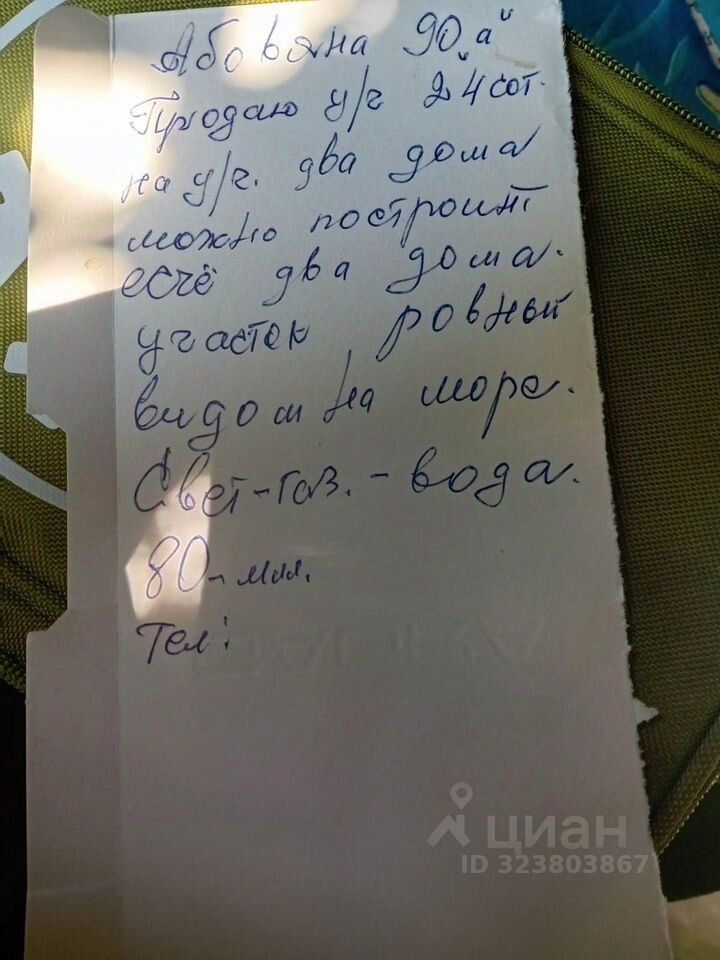 Абовяна 90 "а"
Продаю у/ч 24 сот.
на у/ч. два дома
можно построит
есчё два дома.
участок ровный
видом на море.
Свет-газ.-вода.
80-мил.
Тел:
циан
ID 323803867